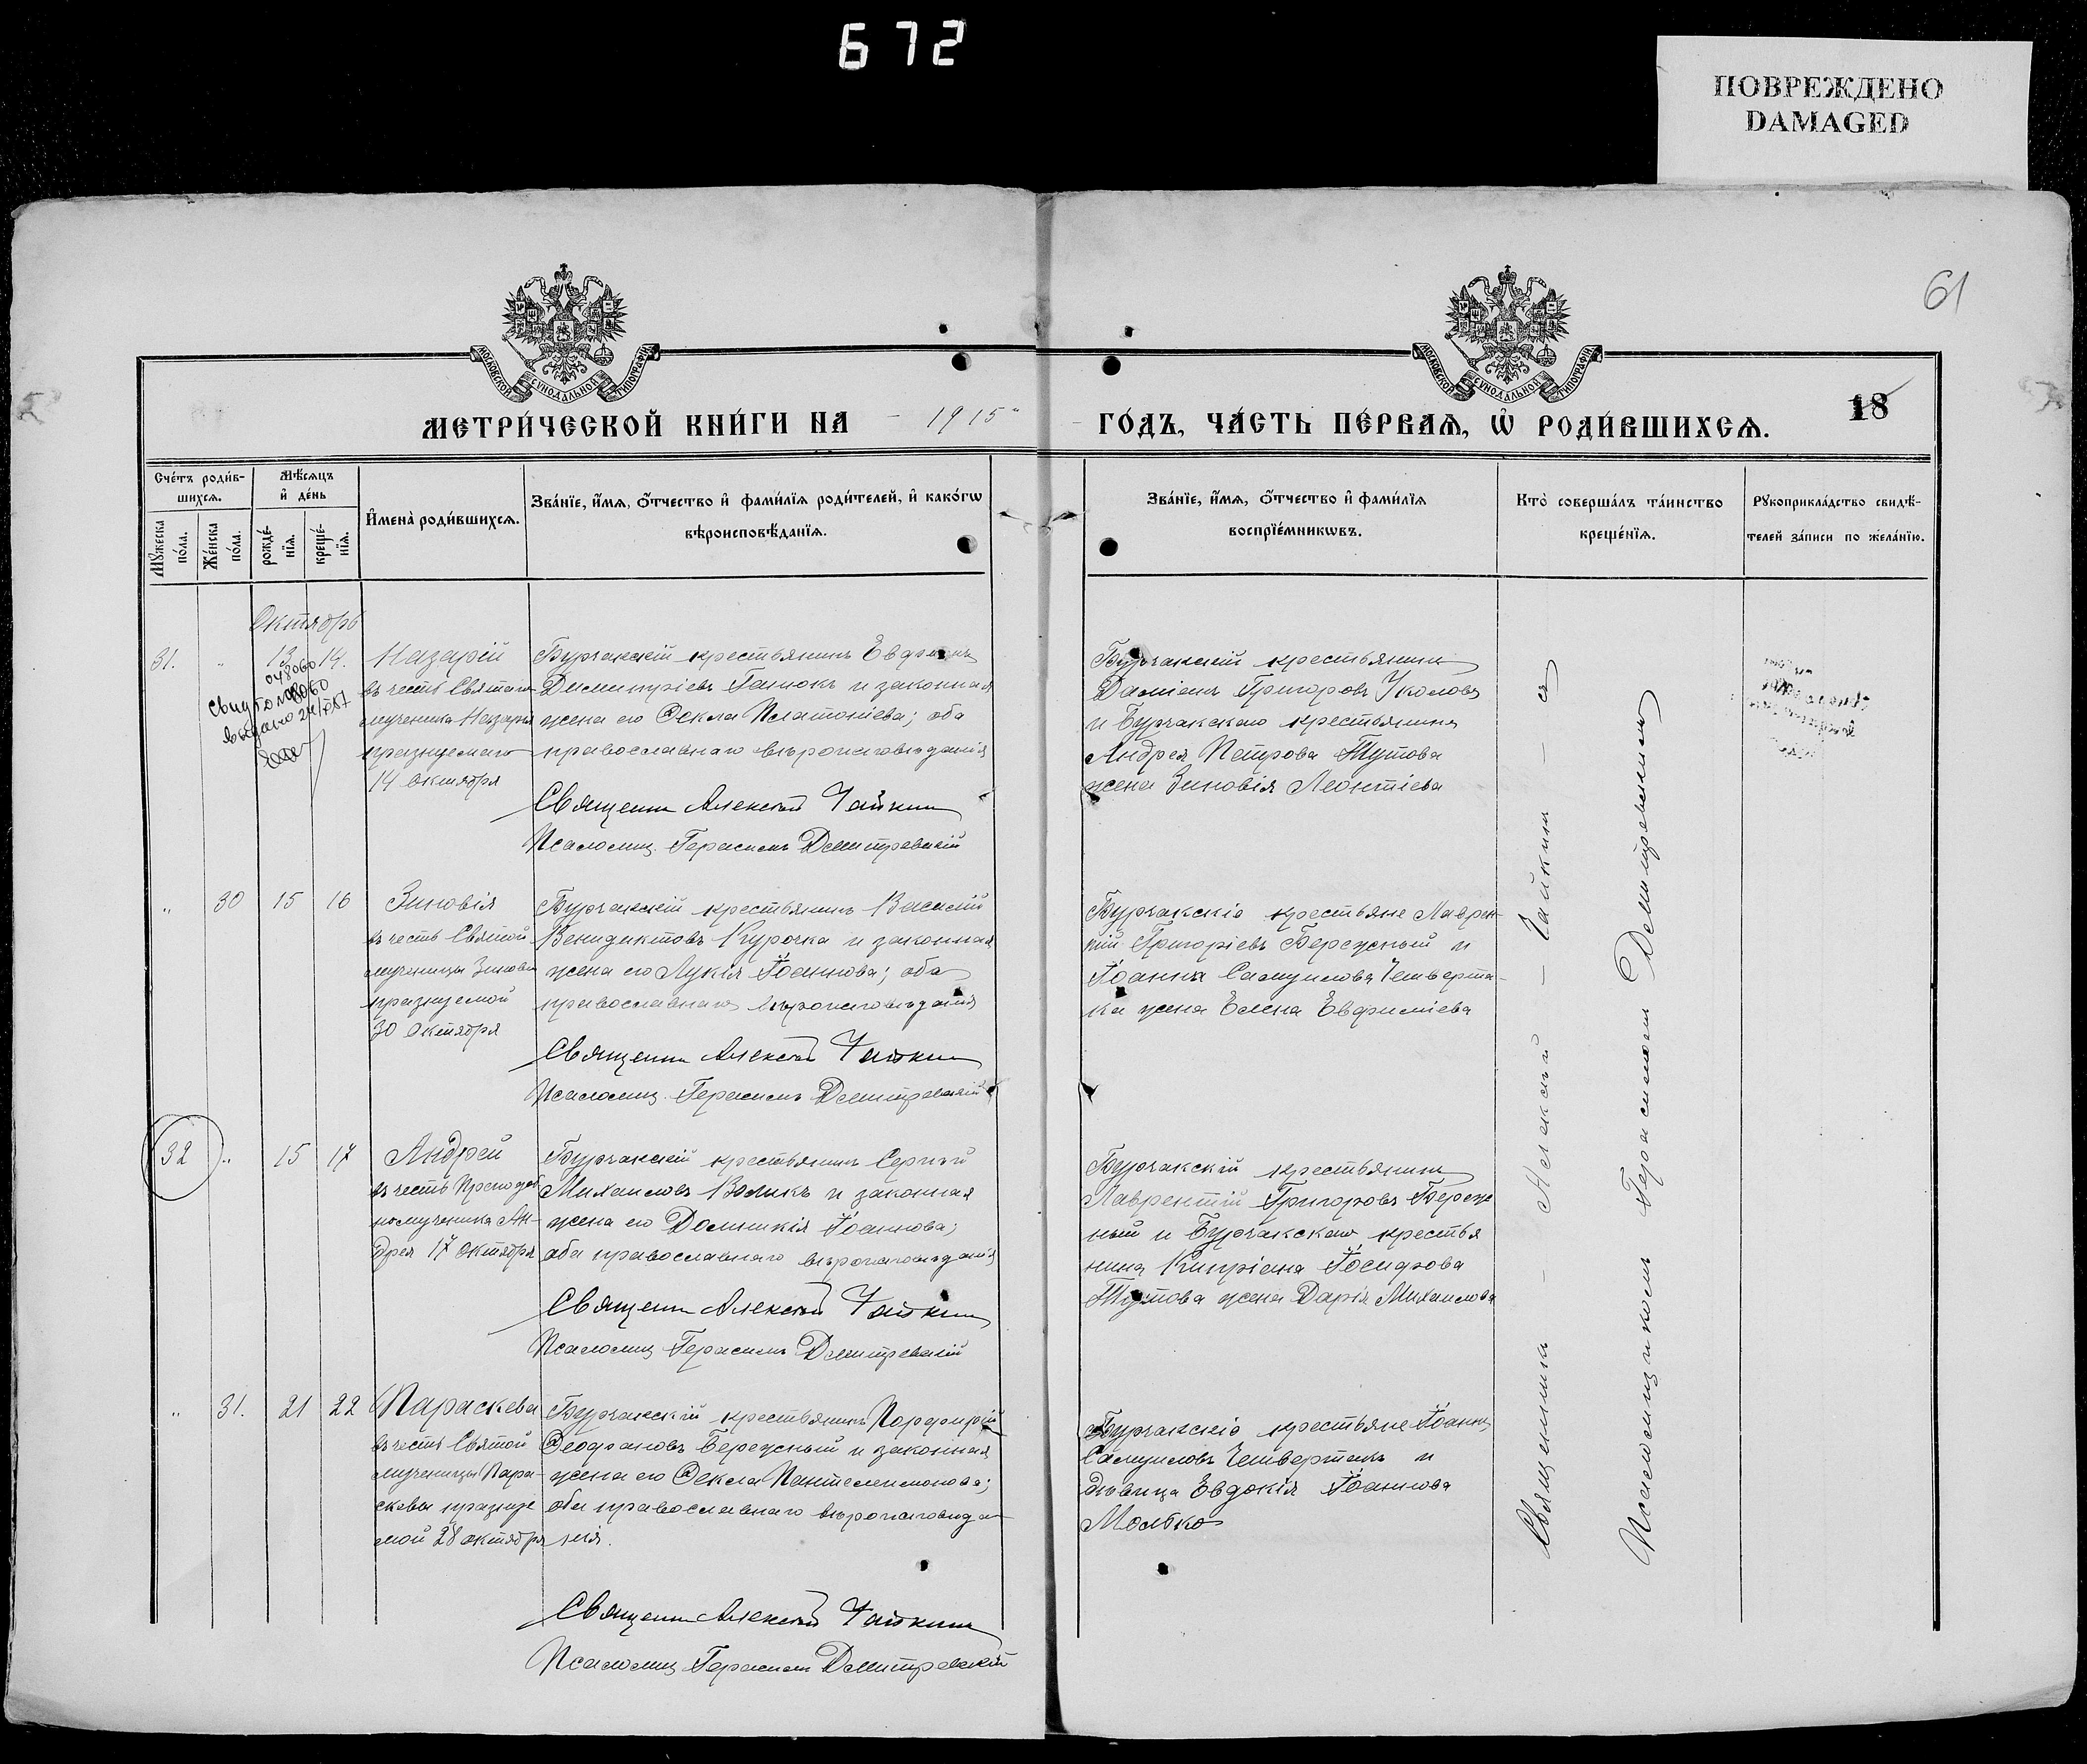 672
ПОВРЕЖДЕНО
DAMAGED
61
МОСКОВСКОЙ СѴНОДАЛЬНОЙ ТИПОГРАФІИ
МОСКОВСКОЙ СѴНОДАЛЬНОЙ ТИПОГРАФІИ
МЕТРИ́ЧЕСКОЙ КНИ́ГИ НА 1915
ГО́ДЪ, ЧА́СТЬ ПЕ́РВАѦ, Ѡ҆ РОДИ́ВШИХСѦ.
18
Сче́тъ роди́в-
шихсѧ.
Мѹжеска по́ла.
Же́нска по́ла.
Мѣ́сѧцъ
и҆ де́нь
рожде́-
нїѧ.
креще́-
нїѧ.
И҆мена̀ роди́вшихсѧ.
Зва́нїе, и҆́мѧ, ѻ҆́тчество и҆ фами́лїѧ роди́телей, и҆ како́гѡ
вѣроисповѣ́данїѧ.
Зва́нїе, и҆́мѧ, ѻ҆́тчество и҆ фами́лїѧ
воспрїе́мникѡвъ.
Кто̀ соверша́лъ та́инство
креще́нїѧ.
Рѹкоприкла́дство свидѣ́-
телей за́писи по жела́нїю.
Октябрь
31. " 13 14.
Назарій
въ честь Святаго
мученика Назарія
празднуемаго
14 октября
Бурчакскій крестьянинъ Евдокимъ
Димитріевъ Ганюкъ и законная
жена его Ѳекла Платоніева; оба
православнаго вѣроисповѣданія
Священн Алексѣй Чайкин
Псаломщ. Герасимъ Демитревскій
Бурчакскій крестьянинъ
Даміанъ Григоровъ Уколовъ
и Бурчакскаго крестьянина
Андрея Петрова Тутова
жена Зиновія Леонтіева
" 30 15 16
Зиновія
въ честь Святой
мученицы Зиновіи
празнуемой
30 октября
Бурчакскій крестьянинъ Василій
Венидиктовъ Курочка и законная
жена его Лукія Іоаннова; оба
православнаго вѣроисповѣданія
Священн Алексѣй Чайкин
Псаломщ. Герасимъ Демитревскій
Бурчакскіе крестьяне Лаврен-
тій Григоріевъ Бережный и
Іоанна Самуилова Четверта-
ка жена Елена Евфиміева
32 " 15 17
Андрей
въ честь Преподоб
номученика Ан-
дрея 17 октября
Бурчакскій крестьянинъ Сергѣй
Михаиловъ Воликъ и законная
жена его Домникія Іоаннова;
оба православнаго вѣроисповѣданія
Священн Алексѣй Чайкин
Псаломщ Герасимъ Демитревскій
Бурчакскій крестьянинъ
Лаврентій Григоровъ Береж
ный и Бурчакскаго крестья
нина Кипріана Іосифова
Тутова жена Дарія Михаилова
" 31. 21 22
Параскева
въ честь Святой
мученицы Пара-
скевы празнуе
мой 28 октября
Бурчакскій крестьянинъ Порфирій
Ѳеофановъ Бережный и законная
жена его Ѳекла Пантелеимонова;
оба православнаго вѣроисповѣда-
нія.
Священн Алексѣй Чайкин
Псаломщ Герасимъ Демитревскій
Бурчакскіе крестьяне Іоаннъ
Самуиловъ Четвертакъ и
дѣвица Евдокія Іоаннова
Молбко
Священникъ - Алексѣй - Чайкинъ
Псаломщикомъ Герасимомъ Демитревскимъ